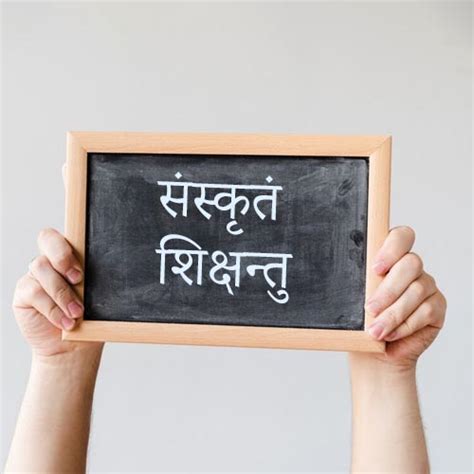 संस्कृतं
शिक्षन्तु